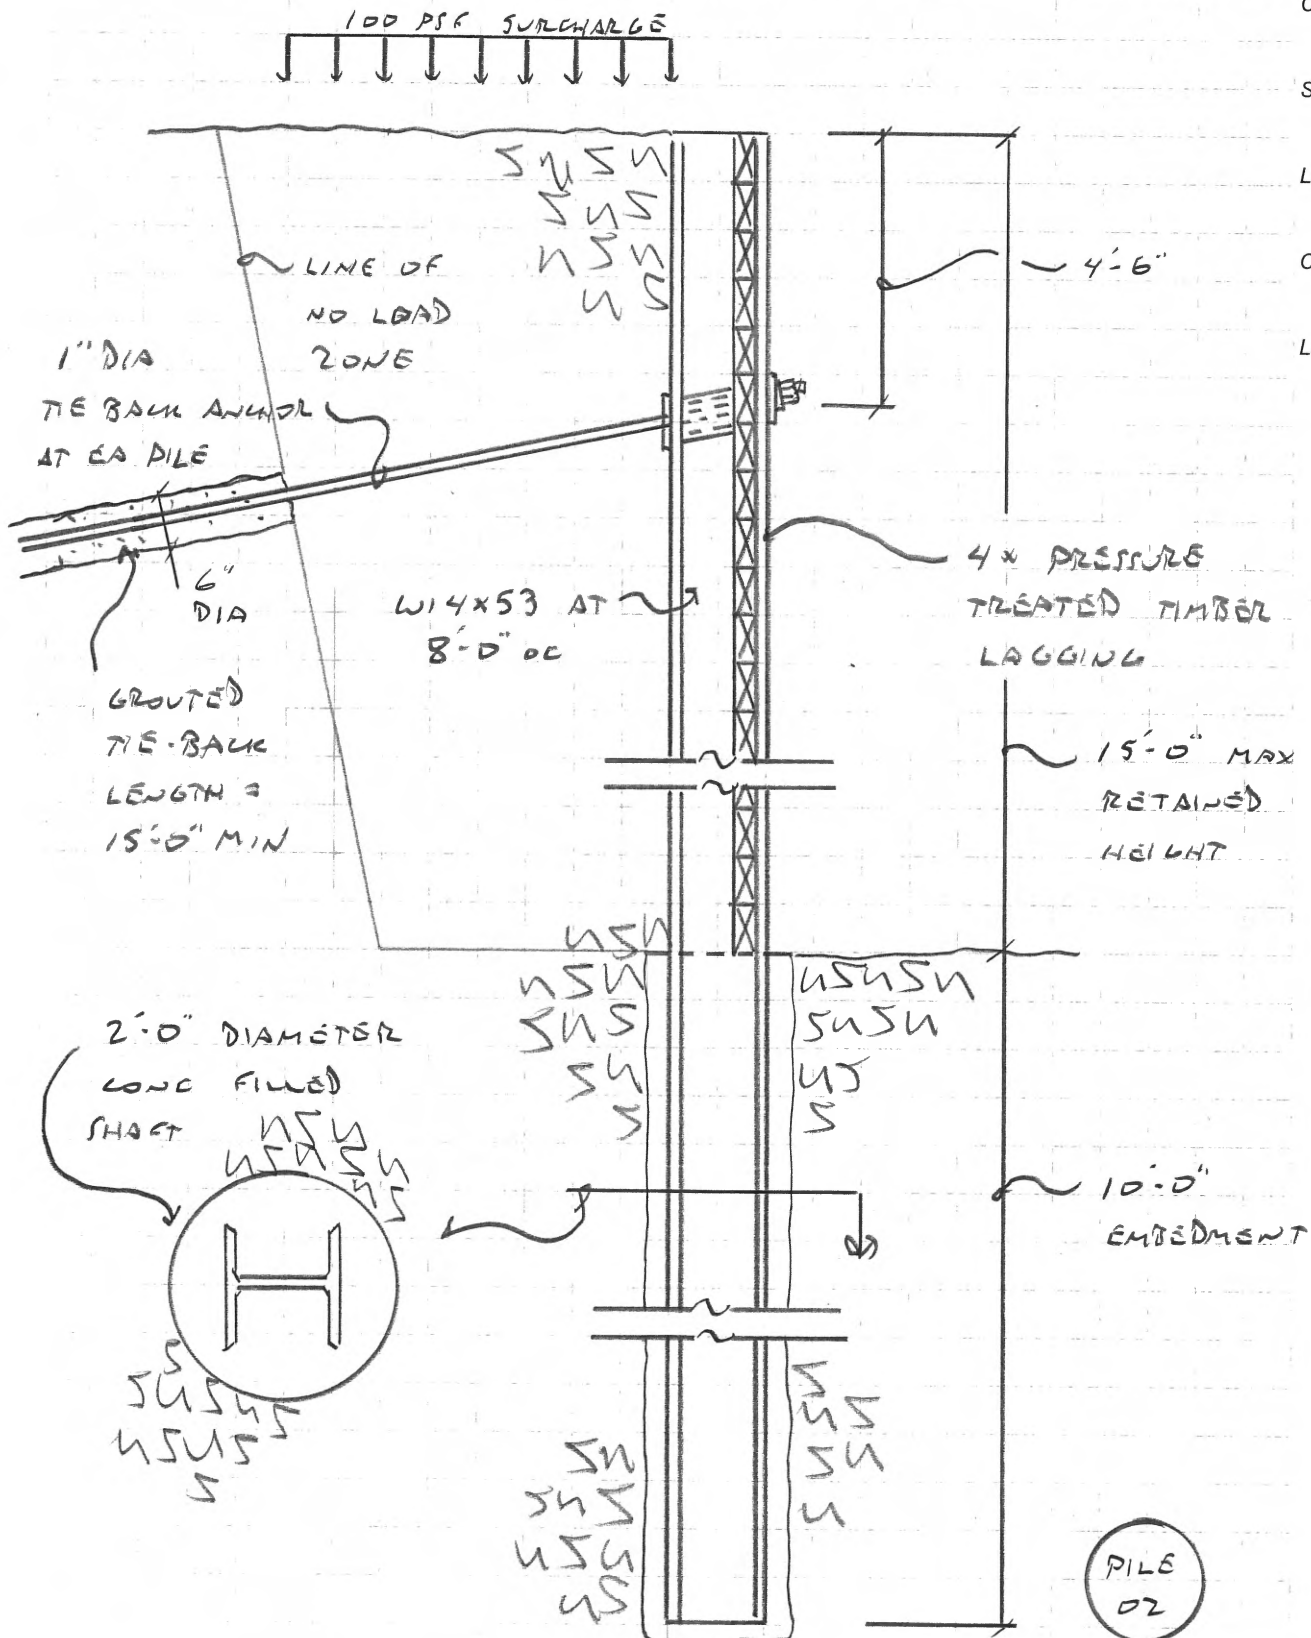 100 PSF SURCHARGE
LINE OF
NO LOAD
ZONE
4'-6"
1" DIA
TIE BACK ANCHOR
AT EA PILE
6"
DIA
W14x53 AT
8'-0" OC
4x PRESSURE
TREATED TIMBER
LAGGING
GROUTED
TIE-BACK
LENGTH =
15'-0" MIN
15'-0" MAX
RETAINED
HEIGHT
2'-0" DIAMETER
CONC FILLED
SHAFT
10'-0"
EMBEDMENT
PILE
02